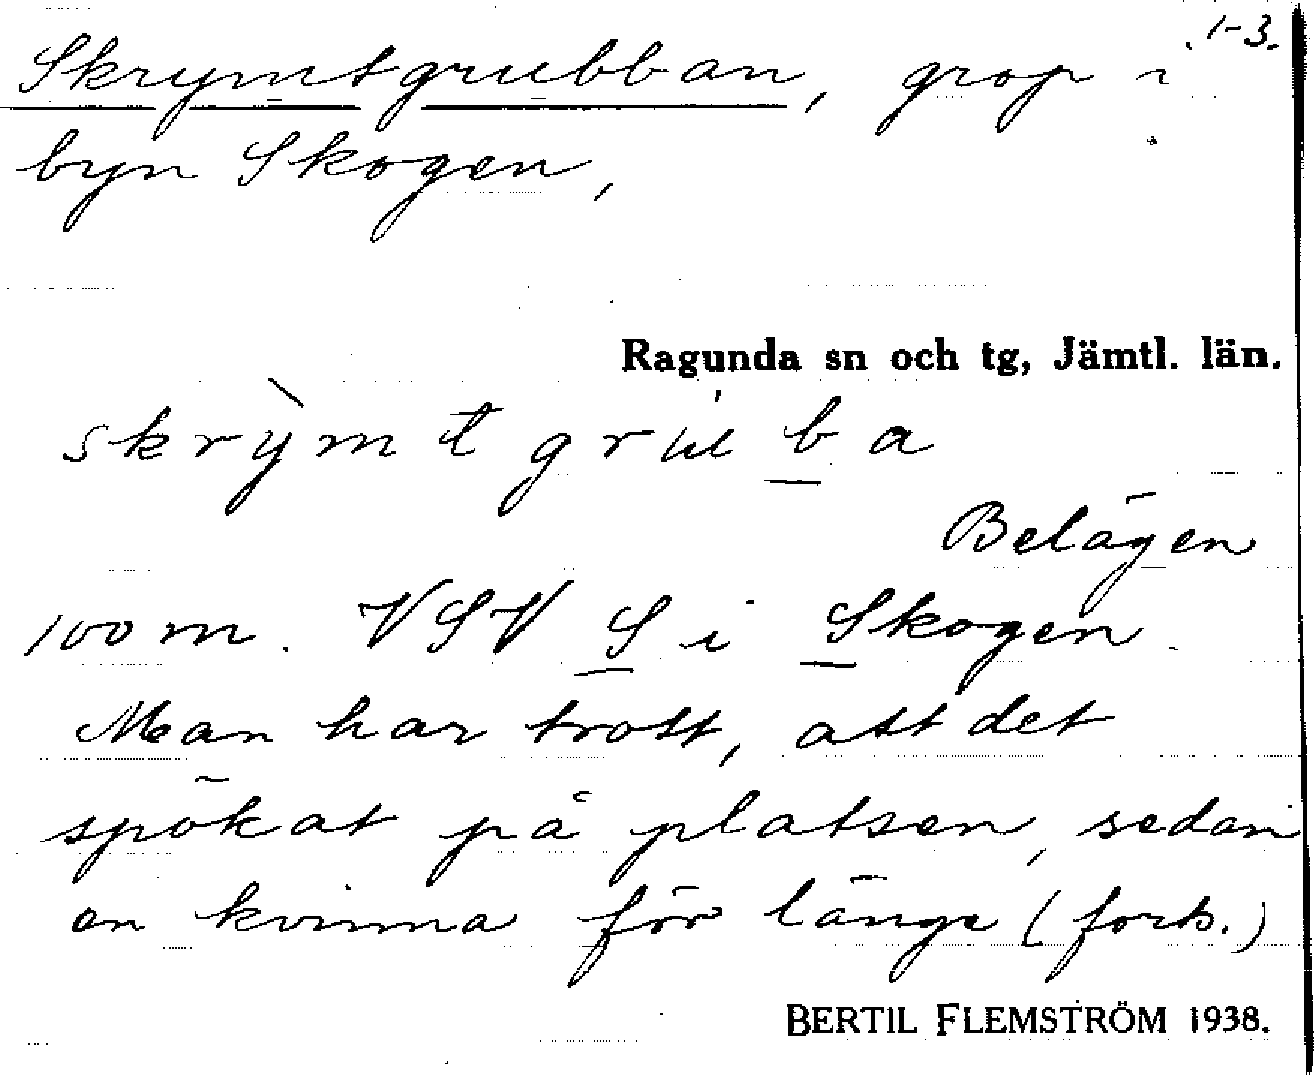 1-3.
Skrymtgrubban, grop i
byn Skogen,
Ragunda sn och tg, Jämtl. län.
skrỳmtgrub̲a
Belägen
100 m. VSV S̲ i S̲kogen.
Man har trott, att det
spökat på platsen, sedan
en kvinna för länge (forts.)
BERTIL FLEMSTRÖM 1938.